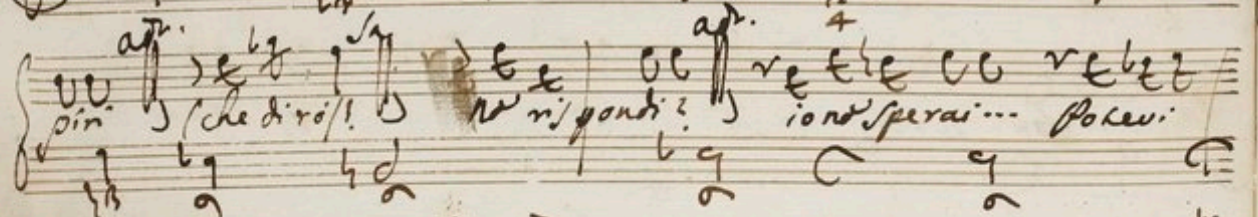 apr. apr. 4
pir (che dirò)! Nō rispondi? io nō sperai... Potevi